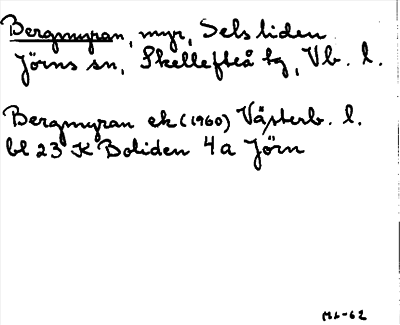 Bergmyran, myr, Selsliden
Jörns sn, Skellefteå kg, Vb. l.
Bergmyran ek (1960) Västerb. l.
bl 23 K Boliden 4a Jörn